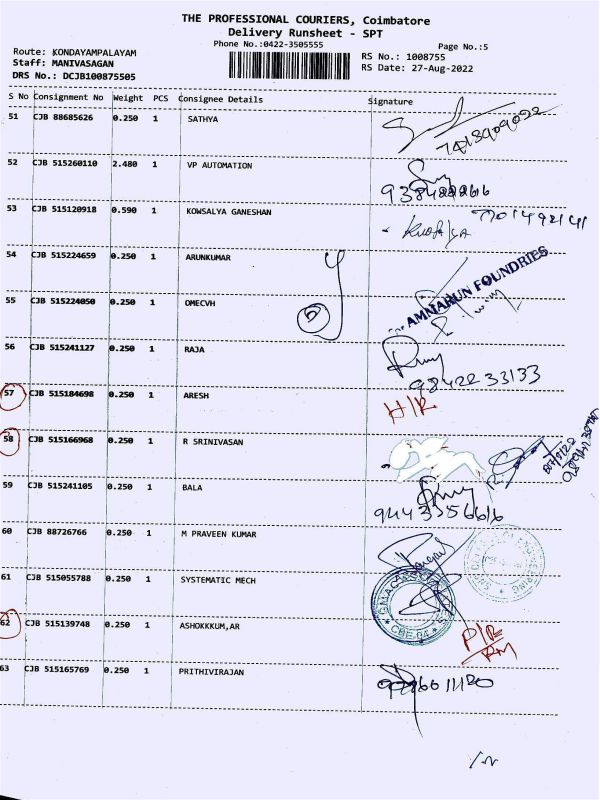 THE PROFESSIONAL COURIERS, Coimbatore
Delivery Runsheet - SPT
Phone No.:0422-3505555
Page No.:5
Route: KONDAYAMPALAYAM
Staff: MANIVASAGAN
DRS No.: DCJB100875505
RS No.: 1008755
RS Date: 27-Aug-2022
S No Consignment No Weight PCS Consignee Details Signature
51 CJB 88685626 0.250 1 SATHYA
52 CJB 515260110 2.480 1 VP AUTOMATION
53 CJB 515120918 0.590 1 KOWSALYA GANESHAN
7701492141
54 CJB 515224659 0.250 1 ARUNKUMAR
AMNARUN FOUNDRIES
55 CJB 515224050 0.250 1 OMECVH
56 CJB 515241127 0.250 1 RAJA
9842233133
57 CJB 515184698 0.250 1 ARESH
H/R
58 CJB 515166968 0.250 1 R SRINIVASAN
59 CJB 515241105 0.250 1 BALA
9443356616
60 CJB 88726766 0.250 1 M PRAVEEN KUMAR
61 CJB 515055788 0.250 1 SYSTEMATIC MECH
62 CJB 515139748 0.250 1 ASHOKKKUM,AR
63 CJB 515165769 0.250 1 PRITHIVIRAJAN